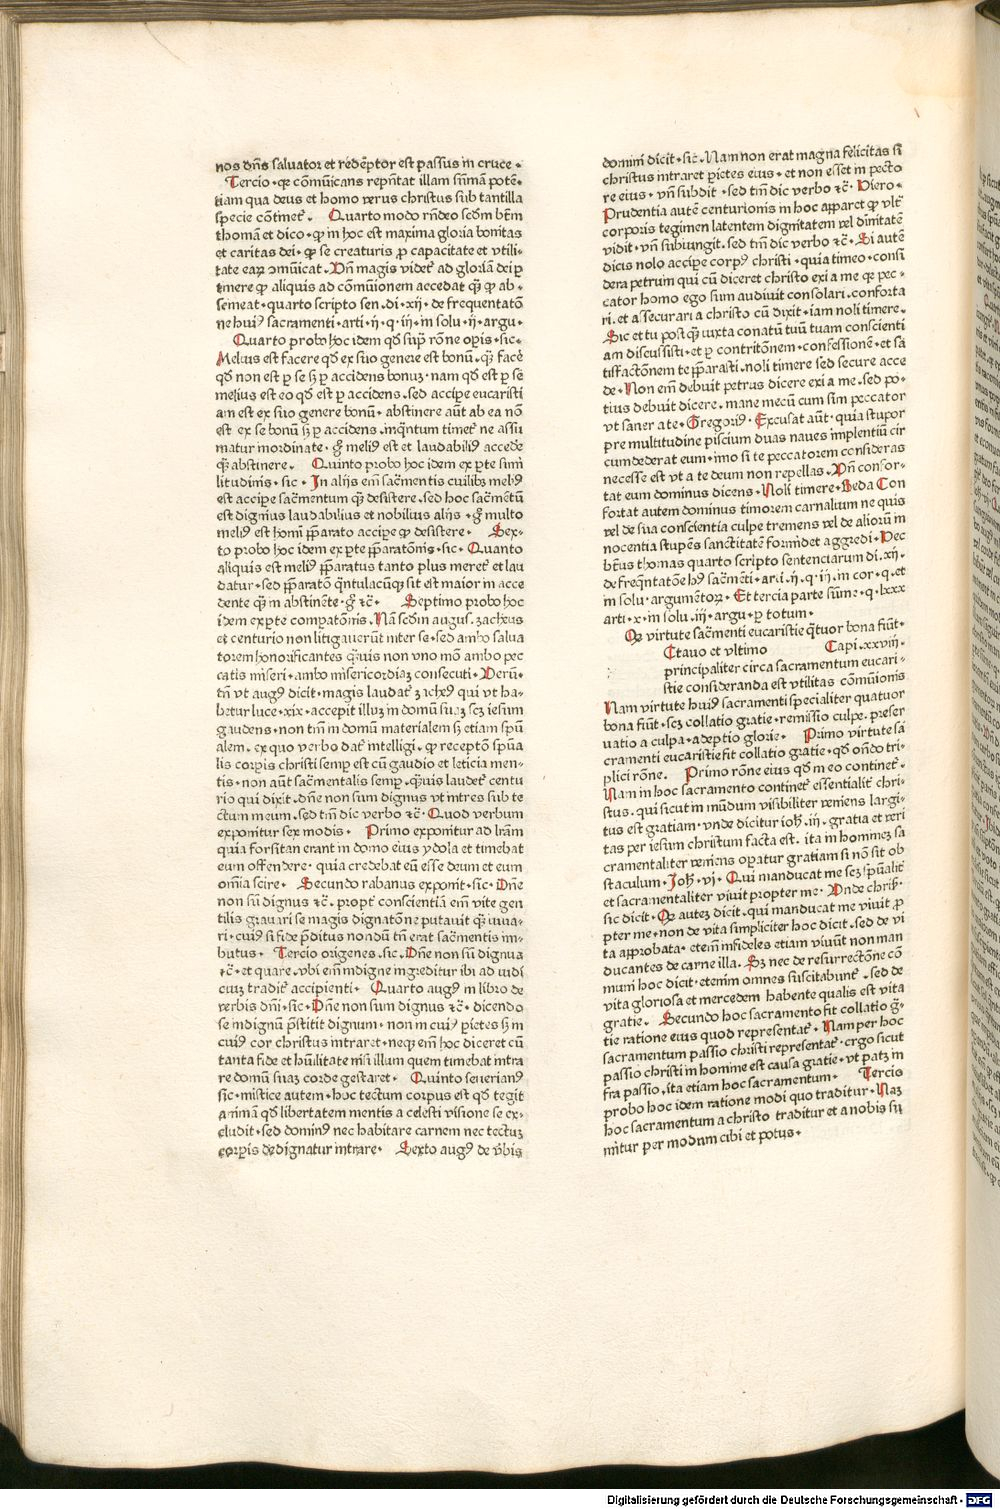 nos dn̄s saluator et redēptor est passus in cruce ⋅
Tercio ⋅ qꝛ cōmūicans repn̄tat illam sūmā potē⸗
tiam qua deus et homo verus christus sub tantilla
specie cōtinet᷑ . Quarto modo rn̄deo scdm btm̄
thomā et dico ⋅ ꝙ in hoc est maxima gloria bonitas
et caritas dei ⋅ ꝙ se creaturis ꝓ capacitate et vtili⸗
tate eaꝝ ↄmūicat . Vn̄ magis videt᷑ ad gloriā dei ꝑ
tinere ꝙ aliquis ad cōmūionem accedat qͣꝫ ꝙ ab⸗
semeat ⋅ quarto scripto sen . di ⋅ xij ⋅ de frequentatō
ne huiꝰ sacramenti ⋅ arti ⋅ ij ⋅ q ⋅ iij ⋅ in solu ⋅ ij ⋅ argu ⋅
Quarto probo hoc idem qd̄ suꝑ rōne oꝑis ⋅ sic ⋅
Melius est facere qd̄ ex suo genere est bonū ⋅ qͣꝫ facē
qd̄ non est ꝑ se sꝫ ꝑ accidens bonuꝫ ⋅ nam qd̄ est ꝑ se
melius est eo qd̄ est ꝑ accidens . sed acciꝑe eucaristi
am est ex suo genere bonū ⋅ abstinere aūt ab ea nō
est ex se bonū sꝫ ꝑ accidens . inqͣntum timet᷑ ne assu
matur inordinate ⋅ gͦ meliꝰ est et laudabiliꝰ accede
qͣꝫ abstinere . Quinto probo hoc idem ex ꝑte simi
litudinis ⋅ sic ⋅ In alijs em̄ sacmētis cuilibꝫ meliꝰ
est acciꝑe sac̄mentum qͣꝫ desistere . sed hoc sac̄mētū
est dignius laudabilius et nobilius alijs ⋅ gͦ multo
meliꝰ est homī p̄parato acciꝑe qͣꝫ desistere ⋅ Sex⸗
to probo hoc idem ex ꝑte p̄paratōnis ⋅ sic ⋅ Quanto
aliquis est meliꝰ p̄paratus tanto plus meret᷑ et lau
datur ⋅ sed p̄paratō qͣntulacūqꝫ sit est maior in acce
dente qͣꝫ in abstinēte ⋅ gͦ ⁊c̄ ⋅ Septimo probo hoc
idem ex ꝑte compatōnis ⋅ Nā scdm augus . zacheus
et centurio non litigauerūt inter se ⋅ sed ambo salua
torem honorificantes qͣuis non vno mō ambo pec
catis miseri ⋅ ambo misericordiaꝫ consecuti ⋅ Verū⸗
tn̄ vt augꝰ dicit ⋅ magis laudat᷑ zachꝰ qui vt ha⸗
betur luce ⋅ xix ⋅ accepit illuꝫ in domū suaꝫ scꝫ iesum
gaudens ⋅ non tm̄ in domū materialem sꝫ etiam spū
alem . ex quo verbo dat᷑ intelligi . ꝙ receptō spūa
lis corꝑis christi semꝑ est cū gaudio et leticia men⸗
tis ⋅ non aūt sac̄mentalis semꝑ . qͣuis laudet᷑ centu
rio qui dixit . dn̄e non sum dignus vt intres sub te
ctum meum . sed tm̄ dic verbo ⁊c̄ ⋅ Quod verbum
exponitur sex modis ⋅ Primo exponitur ad lr̄am
quia forsitan erant in domo eius ydola et timebat
eum offendere ⋅ quia credebat eū esse deum et eum
om̄ia scire ⋅ Secundo rabanus exponit ⋅ sic ⋅ Dn̄e
non sū dignus ⁊c̄ . propt᷑ conscientiā em̄ vite gen
tilis grauari se magis dignatōne putauit qͣꝫ iuua⸗
ri ⋅ cuiꝰ si fide p̄ditus nondū tn̄ erat sac̄mentis im⸗
butus ⋅ Tercio origenes . sic . Dn̄e non sū dignus
⁊c̄ ⋅ et quare ⋅ vbi em̄ indigne ingreditur ibi ad iudi
ciuꝫ tradit᷑ accipienti ⋅ Quarto augꝰ in libro de
verbis dn̄i ⋅ sic ⋅ Dn̄e non sum dignus ⁊c̄ ⋅ dicendo
se indignū p̄stitit dignum ⋅ non in cuiꝰ ꝑietes sꝫ in
cuiꝰ cor christus intraret ⋅ neqꝫ em̄ hoc diceret cū
tanta fide et hūilitate nisi illum quem timebat intra
re domū suaꝫ corde gestaret ⋅ Quinto seuerianꝰ
sic ⋅ mistice autem ⋅ hoc tectum corpus est qd̄ tegit
animā qd̄ libertatem mentis a celesti visione se ex⸗
cludit ⋅ sed dominꝰ nec habitare carnem nec tectuꝫ
corꝑis dedignatur intrare ⋅ Sexto augꝰ de v̄bis
domini dicit ⋅ sic ⋅ Nam non erat magna felicitas si
christus intraret ꝑietes eius ⋅ et non esset in pecto
re eius ⋅ vn̄ subdit ⋅ sed tm̄ dic verbo ⁊c̄ ⋅ Piero ⋅
Prudentia autē centurionis in hoc apparet ꝙ vlt᷑
corporis tegimen latentem dignitatem vel diuītatē
vidit ⋅ vn̄ subiungit . sed tm̄ dic verbo ⁊c̄ ⋅ Si autē
dicis nolo acciꝑe corpꝰ christi ⋅ quia timeo ⋅ consi
dera petrum qui cū diceret christo exi a me qꝛ pec⸗
cator homo ego sum audiuit consolari . conforta
ri . et assecurari a christo cū dixit ⋅ iam noli timere ⋅
Sic et tu postqͣꝫ iuxta conatū tuū tuam conscienti
am discussisti ⋅ et ꝑ contritōnem ⋅ confessionē ⋅ et sa
tisfactōnem te p̄parasti . noli timere sed secure acce
de ⋅ Non em̄ debuit petrus dicere exi a me . sed po⸗
tius debuit dicere . mane mecū cum sim peccator
vt saner a te ⋅ Gregoriꝰ ⋅ Excusat aūt ⋅ quia stupor
pre multitudine piscium duas naues implentiū cir
cumdederat eum ⋅ imo si te peccatorem consideras
necesse est vt a te deum non repellas ⋅ Vn̄ confor⸗
tat eum dominus dicens ⋅ Noli timere ⋅ Beda Con
fortat autem dominus timorem carnalium ne quis
vel de sua conscientia culpe tremens vel de aliorū in
nocentia stupēs sanctitatē formidet aggredi ⋅ Hec
btūs thomas quarto scripto sentenciarum di . xij ⋅
de freqͣntatōe hꝰ sac̄mēti ⋅ arti . ij . q ⋅ ij . in cor ⋅ q . et
in solu ⋅ argumētoꝝ ⋅ Et tercia parte sūme ⋅ q . lxxx
arti ⋅ x ⋅ in solu . iij ⋅ argu ⋅ ꝑ totum ⋅
Qꝫ virtute sac̄menti eucaristie qͣtuor bona fiūt ⋅
Ctauo et vltimo Capi . xxviij .
principaliter circa sacramentum eucari⸗
stie consideranda est vtilitas cōmūionis
Nam virtute huiꝰ sacramenti specialiter quatuor
bona fiūt ⋅ scꝫ collatio gratie ⋅ remissio culpe . preser
uatio a culpa ⋅ adeptio glorie ⋅ Primo virtute sa
cramenti eucaristie fit collatio gratie ⋅ qd̄ ondo tri⸗
plici rōne . Primo rōne eius qd̄ in eo continet᷑ ⋅
Nam in hoc sacramento continet᷑ essentialit᷑ chri⸗
stus . qui sicut in mūdum visibiliter veniens largi⸗
tus est gratiam ⋅ vnde dicitur ioh̄ . iij . gratia et veri
tas per iesum christum facta est . ita in hominez sa
cramentaliter veniens oꝑatur gratiam si nō sit ob
staculum ⋅ Joh̄ ⋅ vj ⋅ Qui manducat me scꝫ spūalit᷑
et sacramentaliter viuit propter me ⋅ Vnde chris̄ .
sic dicit ⋅ Qꝫ autez dicit . qui manducat me viuit ꝓ
pter me ⋅ non de vita simpliciter hoc dicit . sed de vi
ta approbata ⋅ etem̄ infideles etiam viuūt non man
ducantes de carne illa . Sꝫ nec de resurrectōne cō
muni hoc dicit ⋅ etenim omnes suscitabunt᷑ . sed de
vita gloriosa et mercedem habente qualis est vita
gratie . Secundo hoc sacramento fit collatio gͣ⸗
tie ratione eius quod representat᷑ ⋅ Nam per hoc
sacramentum passio christi representat᷑ . ergo sicut
passio christi in homine est causa gratie ⋅ vt patꝫ in
fra passio . ita etiam hoc sacramentum ⋅ Tercio
probo hoc idem ratione modi quo traditur ⋅ Naꝫ
hoc sacramentum a christo traditur et a nobis su
mitur per modum cibi et potus ⋅
Digitalisierung gefördert durch die Deutsche Forschungsgemeinschaft -
DFG